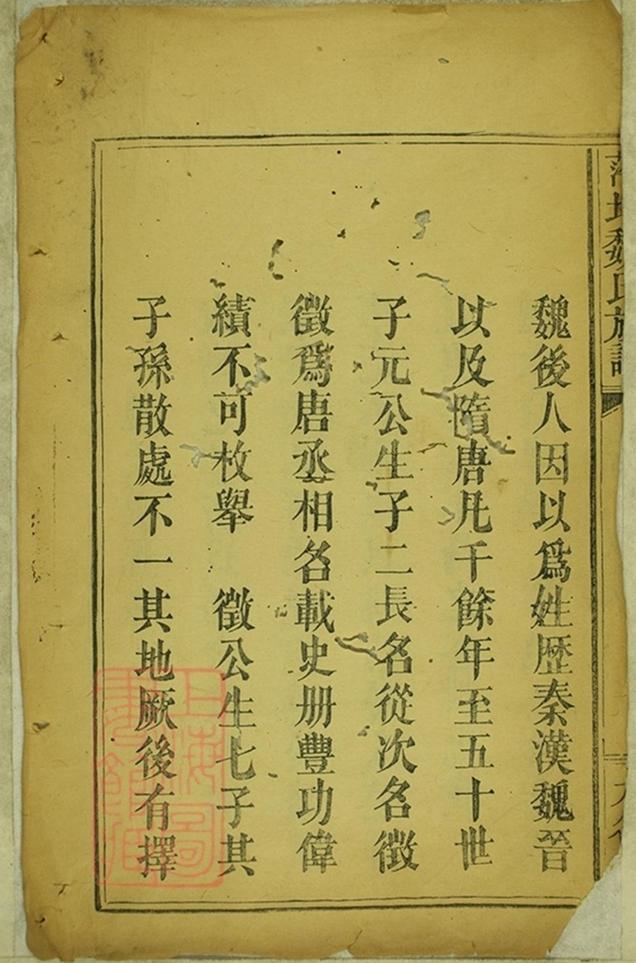 魏氏族
魏後人因以爲姓歴秦漢魏晉
以及隋唐凡千餘年至五十世
子元公生子二長名從次名徵
徵爲唐丞相名載史册豐功偉
績不可枚舉　徵公生七子其
子孫散處不一其地厥後有擇
上海圖